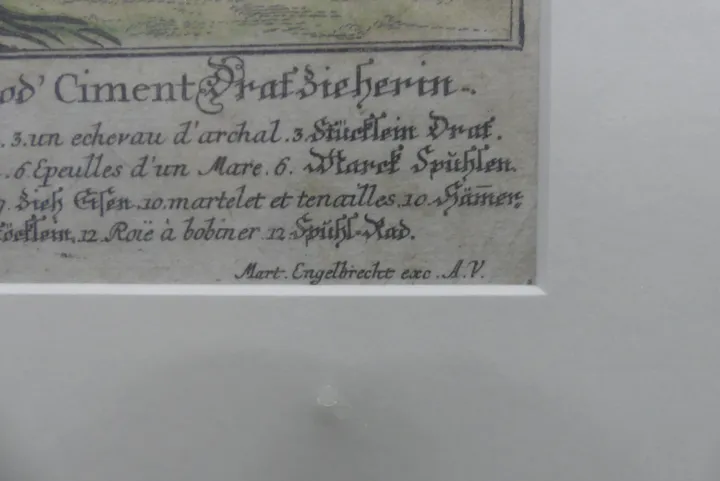 od' Ciment Dratzieherin.
. 3. un echevau d'archal. 3. Stücklein Drat.
. 6. Epeulles d'un Marc. 6. Marck Spühlen.
9. Zieh Eisen. 10. martelet et tenailles. 10. Häm̄er:
12. Roië à bobiner 12. Spühl-Rad.
Mart. Engelbrecht exc. A.V.